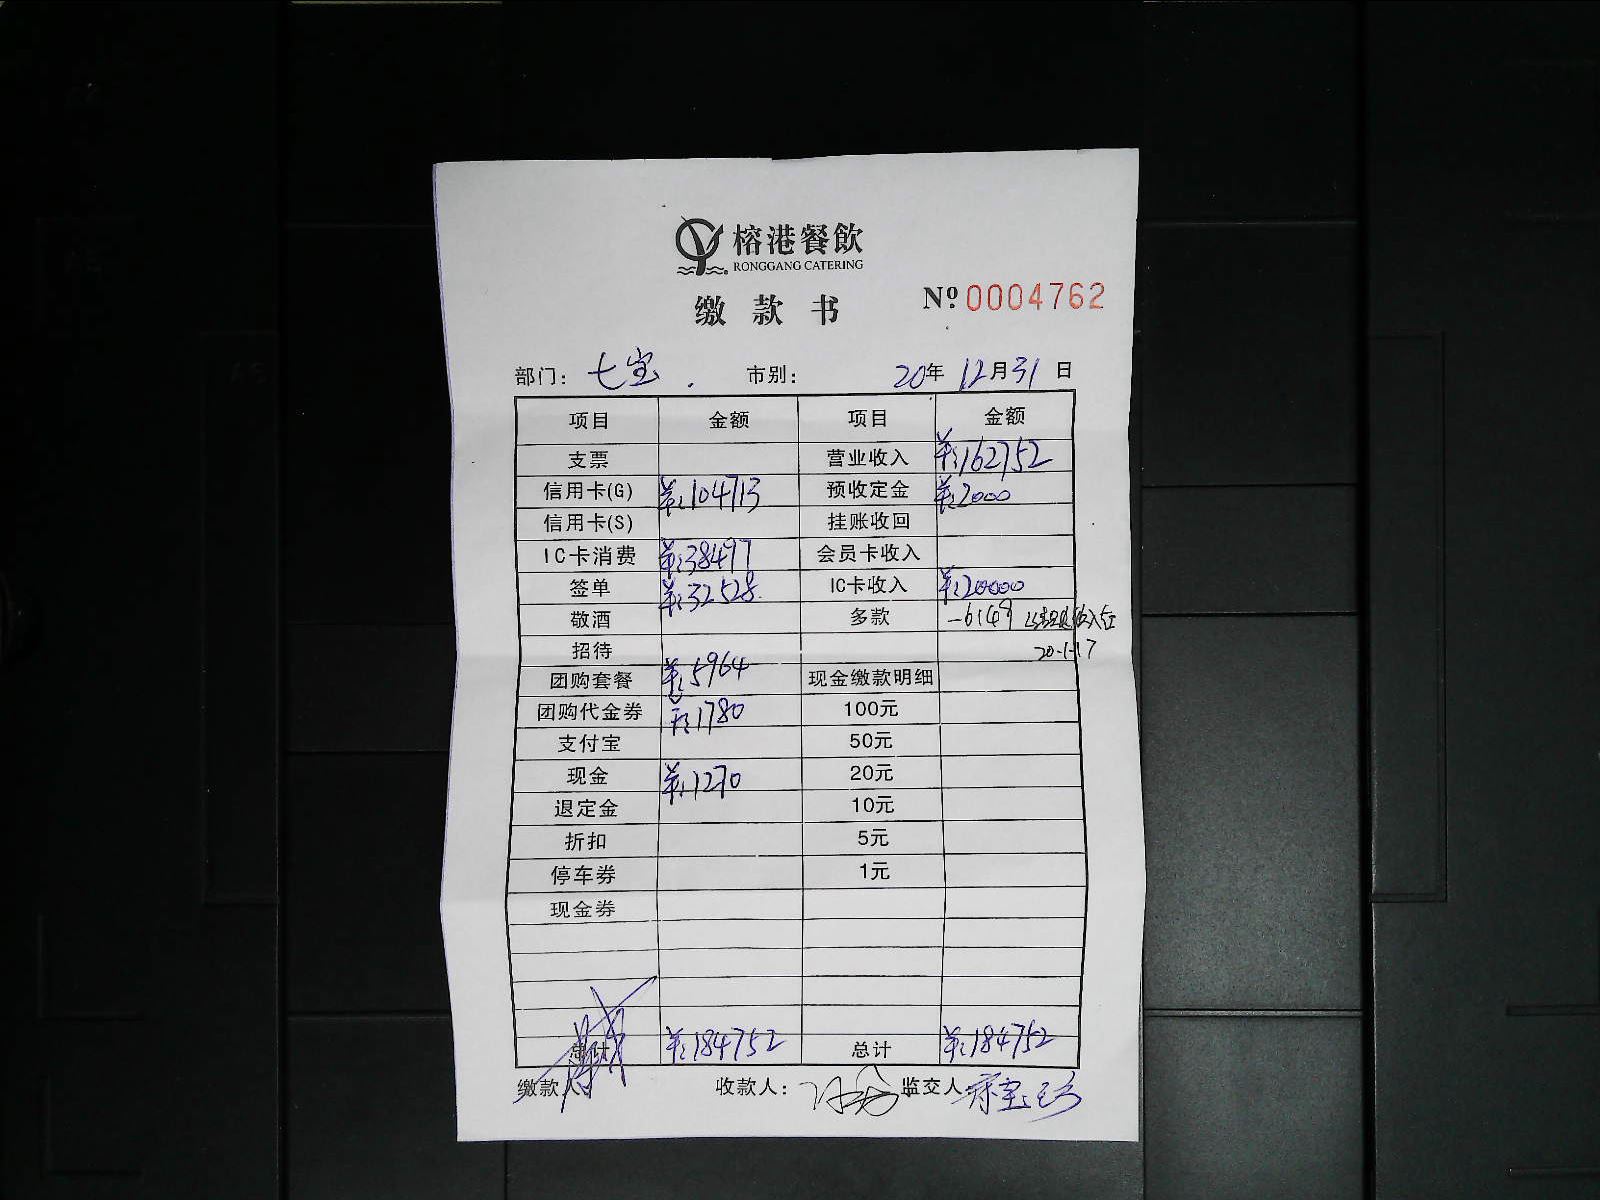 榕港餐飲
RONGGANG CATERING
缴款书
Nº 0004762
部门: 七宝. 市别: 20年12月31日
项目 金额 项目 金额
支票 营业收入 ¥:162752
信用卡(G) ¥:104713 预收定金 ¥:2000
信用卡(S) 挂账收回
IC卡消费 ¥:38497 会员卡收入
签单 ¥:32528. IC卡收入 ¥:20000
敬酒 多款 -6149
招待 20-1-17
团购套餐 ¥:5964 现金缴款明细
团购代金券 ¥:1780 100元
支付宝 50元
现金 ¥:1270 20元
退定金 10元
折扣 5元
停车券 1元
现金券
总计 ¥:184752 总计 ¥:184752
缴款人 收款人: 监交人